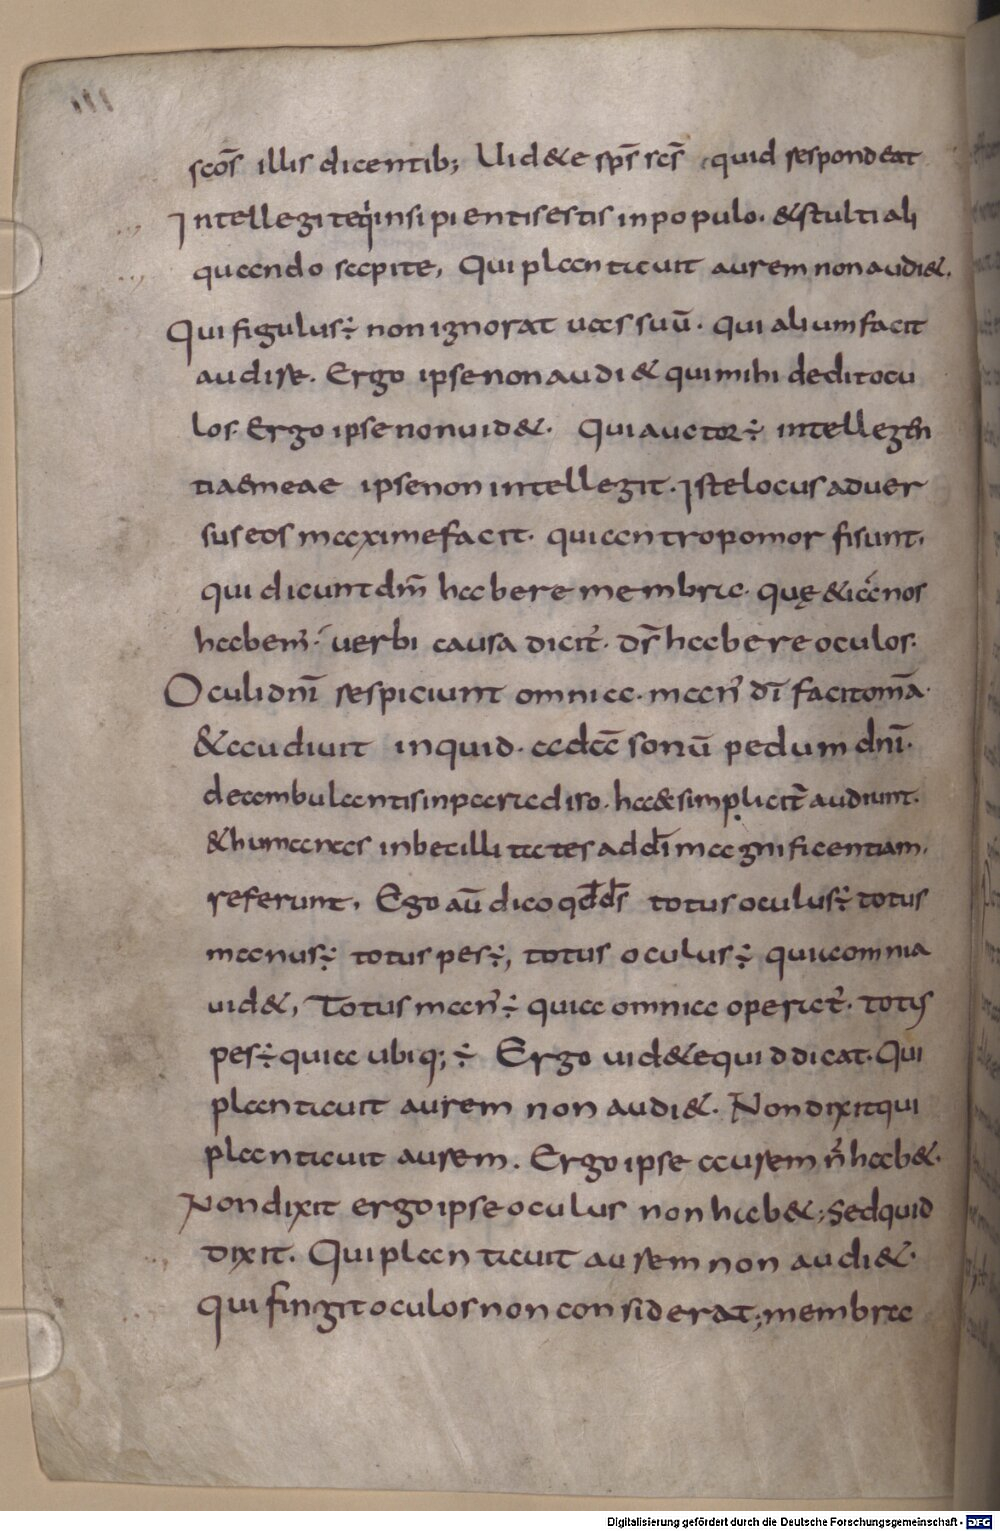 scōs illis dicentib; Uid&e sp̄s sc̄s quid respondeat
Intellegite q̄ insipientis estis in populo. & stulti ali
quando sapite, Qui plantauit aurem non audi&.
Qui figulus÷ non ignorat uas suū. qui alium facit
audire. Ergo ipse non audi& qui mihi dedit ocu
los. Ergo ipse non uid&. Qui auctor÷ intellegen
tiae meae ipse non intellegit. Iste locus aduer
sus eos maxime facit. qui antropomorfi sunt,
qui dicunt dn̄m habere membra. quę & iā nos
habem̄. uerbi causa dicit̄. ds̄ habere oculos.
Oculi dn̄i respiciunt omnia. man̄ dī facit omā.
& audiuit inquid. adā sonū pedum dn̄i.
deambulantis in paradiso. haec simplicit̄ audiunt.
& humanas inbecillitates ad dī magnificentiam,
referunt, Ego aū dico qd̄ ds̄ totus oculus÷ totus
manus÷ totus pes÷, totus oculus÷ quia omnia
uid&, Totus man̄÷ quia omnia operat̄. totus
pes÷ quia ubiq;÷ Ergo uid&e quid dicat. Qui
plantauit aurem non audi&. Non dixit qui
plantauit aurem. Ergo ipse aurem n̄ hab&.
Non dixit ergo ipse oculus non hab&; Sed quid
dixit. Qui plantauit aurem non audi&.
qui fingit oculos non considerat; membra
Digitalisierung gefördert durch die Deutsche Forschungsgemeinschaft - DFG